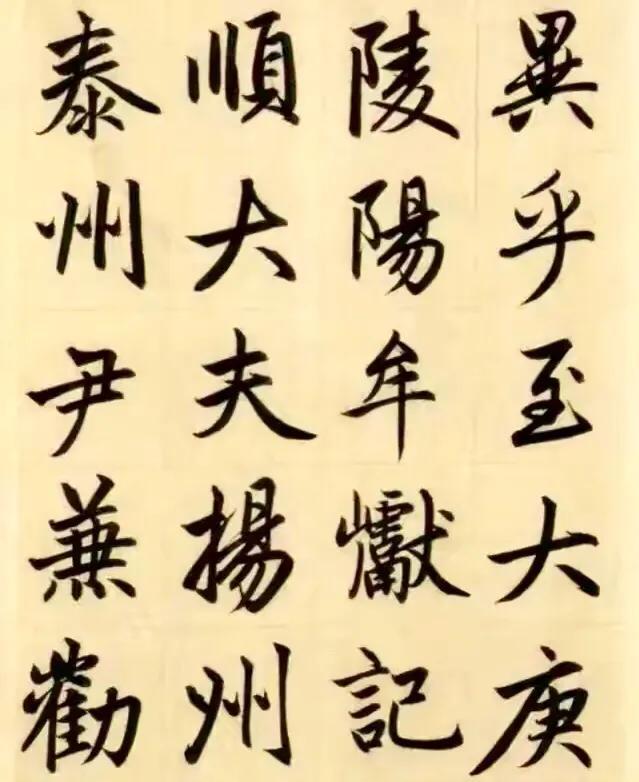 異乎至大庚
陵陽牟巘記
順大夫揚州
泰州尹兼勸